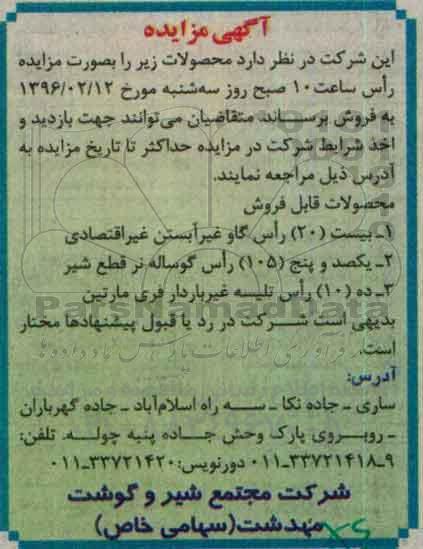 آگهی مزایده
این شرکت در نظر دارد محصولات زیر را بصورت مزایده
رأس ساعت ۱۰ صبح روز سه‌شنبه مورخ ۱۳۹۶/۰۲/۱۲
به فروش برساند. متقاضیان می‌توانند جهت بازدید و
اخذ شرایط شرکت در مزایده حداکثر تا تاریخ مزایده به
آدرس ذیل مراجعه نمایند.
محصولات قابل فروش
۱ـ بیست (۲۰) رأس گاو غیرآبستن غیراقتصادی
۲ـ یکصد و پنج (۱۰۵) رأس گوساله نر قطع شیر
۳ـ ده (۱۰) رأس تلیسه غیرباردار فری مارتین
بدیهی است شرکت در رد یا قبول پیشنهادها مختار
است.
آدرس:
ساری ـ جاده نکا ـ سه راه اسلام‌آباد ـ جاده گهرباران
ـ روبروی پارک وحش جاده پنبه چوله. تلفن:
۹ـ۳۳۷۲۱۴۱۸ـ۰۱۱ دورنویس: ۳۳۷۲۱۴۲۰ـ۰۱۱
شرکت مجتمع شیر و گوشت
مهدشت (سهامی خاص)
ParsNamadData